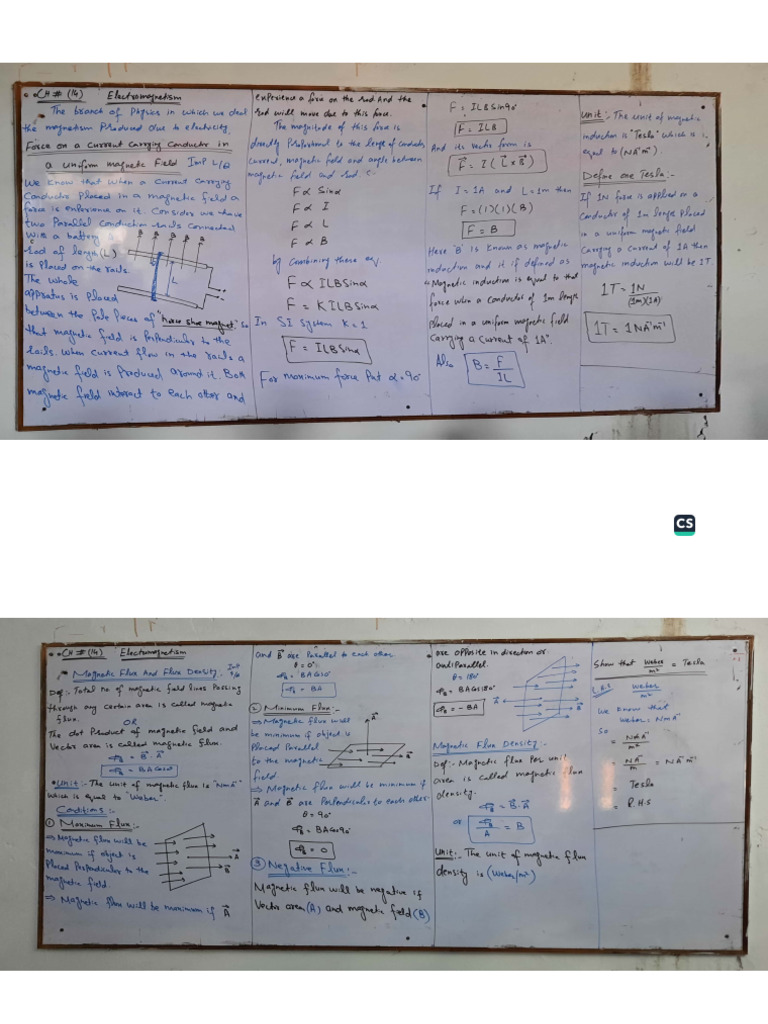 CH # (14) Electromagnetism
The branch of Physics in which we deal
the magnetism Produced due to electricity.
Force on a Current Carrying Conductor in
a uniform magnetic Field Imp L/Q
We know that when a Current Carrying
Conductor Placed in a magnetic field a
force is experience on it. Consider we have
two Parallel conduction rails Connected
With a battery a
rod of length (L)
is Placed on the rails.
The whole
appratos is Placed
between the Pole faces of "horse shoe magnet" so
that magnetic field is Perpendicular to the
rails. When current flow in the rails a
magnetic field is Produced around it. Both
magnetic field interact to each other and
L
experience a force on the rod. And the
rod will move due to this force.
The magnitude of this force is
directly Proportional to the length of conductor
current, magnetic field and angle between
magnetic field and rod :-
F ∝ Sinα
F ∝ I
F ∝ L
F ∝ B
by Combining these eq.
F ∝ ILBSinα
F = K ILBSinα
In SI system K = 1
F = ILBSinα
For maximum force Put α = 90°
F = ILBSin90°
F = ILB
And its vector form is
F⃗ = I (L⃗ × B⃗)
If I = 1A and L = 1m then
F = (1)(1)(B)
F = B
Here 'B' is known as magnetic
induction and it if defined as
"Magnetic induction is equal to that
force when a conductor of 1m length
placed in a uniform magnetic field
Carrying a Current of 1A".
Also B = F/IL
Unit:- The unit of magnetic
induction is "Tesla" which is
equal to (NA⁻¹m⁻¹)
Define one Tesla:-
If 1N force is applied on a
Conductor of 1m length Placed
in a uniform magnetic field
Carrying a current of 1A then
magnetic induction will be 1T.
1T = 1N/(1m)(1A)
1T = 1NA⁻¹m⁻¹
CS
CH # (14) Electromagnetism
Magnetic Flux And Flux Density:- Imp
Def:- Total no of magnetic field lines Passing
through any certain area is called magnetic
flux.
OR
The dot Product of magnetic field and
Vector area is called magnetic flux.
Φ_B = B⃗ . A⃗
Φ_B = BACosθ
Unit:- The unit of magnetic flux is "NmA⁻¹"
which is equal to "Weber".
Conditions :-
① Maximum Flux:-
⇒ Magnetic flux will be
maximum if object is
Placed Perpendicular to the
magnetic field.
A⃗
B⃗
⇒ Magnetic flux will be maximum if A⃗
and B⃗ are Parallel to each other
θ = 0°
Φ_B = BACos0°
Φ_B = BA
2 Minimum Flux:-
⇒ Magnetic flux will
be minimum if object is
Placed Parallel
to the magnetic
field.
A⃗
B⃗
⇒ Magnetic flux will be minimum if
A⃗ and B⃗ are Perpendicular to each other
θ = 90°
Φ_B = BACos90°
Φ_B = 0
③ Negative Flux:-
Magnetic flux will be negative if
Vector area (A) and magnetic field (B)
are opposite in direction or
antiParallel.
θ = 180°
Φ_B = BACos180°
Φ_B = -BA
A⃗
B⃗
Magnetic Flux Density:-
Def:- Magnetic flux Per unit
area is called magnetic flux
density.
Φ_B = B⃗ . A⃗
or Φ_B/A = B
Unit:- The unit of magnetic flux
density is (Weber/m²)
Show that Weber/m² = Tesla
L.H.S Weber/m²
We know that
Weber = NmA⁻¹
So
= NmA⁻¹/m²
= NA⁻¹/m = NA⁻¹m⁻¹
= Tesla
= R.H.S